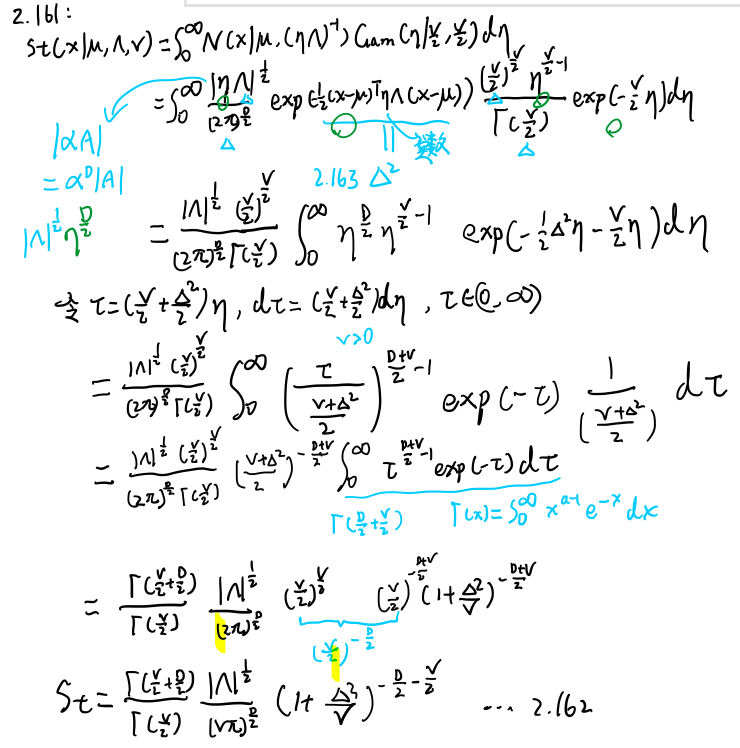 2.161:
St(x|μ,Λ,ν) = ∫₀^∞ N(x|μ,(ηΛ)⁻¹) Gam(η|ν/2,ν/2) dη
= ∫₀^∞ |ηΛ|^{1/2} / (2π)^{D/2} exp(-1/2 (x-μ)ᵀηΛ(x-μ)) (ν/2)^{ν/2} η^{ν/2-1} / Γ(ν/2) exp(-ν/2 η) dη
|αA|
= α^D|A|
2.163 Δ²
|Λ|^{1/2} η^{D/2}
= |Λ|^{1/2} (ν/2)^{ν/2} / (2π)^{D/2} Γ(ν/2) ∫₀^∞ η^{D/2} η^{ν/2-1} exp(-1/2 Δ²η - ν/2 η) dη
令 τ = (ν/2 + Δ²/2) η, dτ = (ν/2 + Δ²/2) dη, τ∈(0,∞)
ν>0
= |Λ|^{1/2} (ν/2)^{ν/2} / (2π)^{D/2} Γ(ν/2) ∫₀^∞ (τ / (ν+Δ²)/2)^{(D+ν)/2 -1} exp(-τ) 1/((ν+Δ²)/2) dτ
= |Λ|^{1/2} (ν/2)^{ν/2} / (2π)^{D/2} Γ(ν/2) ((ν+Δ²)/2)^{-(D+ν)/2} ∫₀^∞ τ^{(D+ν)/2 -1} exp(-τ) dτ
Γ(D/2+ν/2) Γ(x) = ∫₀^∞ x^{a-1} e^{-x} dx
= Γ(ν/2+D/2) / Γ(ν/2) |Λ|^{1/2} / (2π)^{D/2} (ν/2)^{ν/2} (ν/2)^{-(D+ν)/2} (1+Δ²/ν)^{-(D+ν)/2}
(ν/2)^{-D/2}
St = Γ(ν/2+D/2) / Γ(ν/2) |Λ|^{1/2} / (νπ)^{D/2} (1+Δ²/ν)^{-D/2-ν/2} ... 2.162